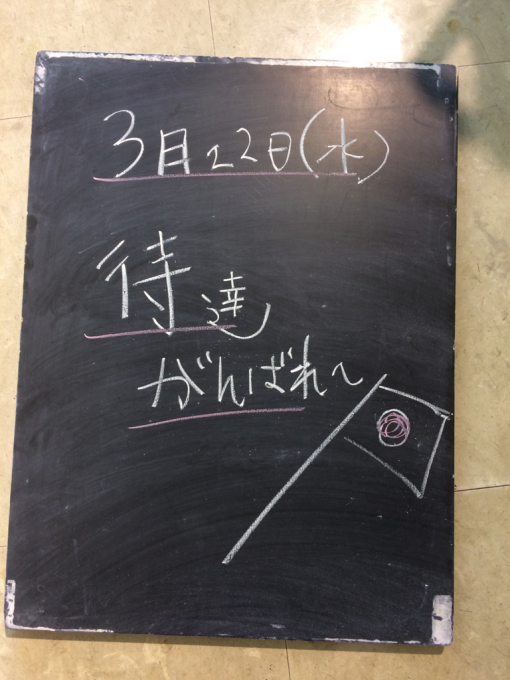 3月22日(水)
待達
がんばれ~